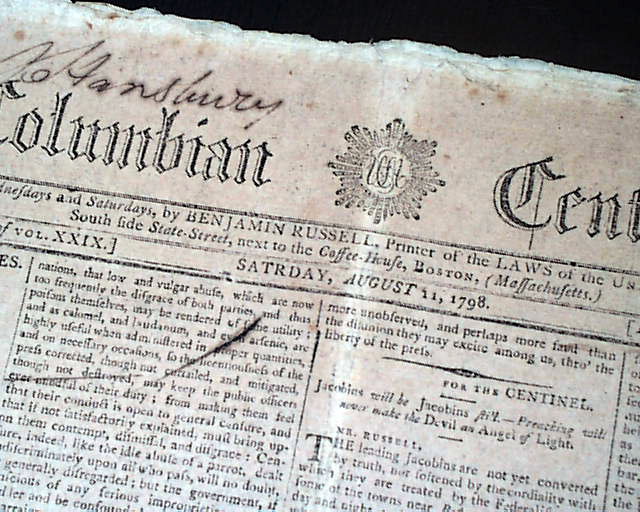 Hansbury
Columbian Cent
nesdays and Saturdays, by BENJAMIN RUSSELL, Printer of the LAWS of the Un
South side State-Street, next to the Coffee-House, BOSTON, (Massachusetts.)
of VOL. XXIX.]
SATRDAY, AUGUST 11, 1798.
ES.
nations, that low and vulgar abuse, which are now
too frequently the disgrace of both parties, and thus
poisons themselves, may be rendered of some utility;
and as calomel, and laudanum, and even arsenic, are
highly useful when administered in proper quantities,
and on necessary occasions, so the licentiousness of the
press corrected, though not and mitigated,
though not destroyed, may keep the public officers
mindful of their duty; from making them feel
that their conduct is open to general censure, and
that if not satisfactorily explained, must bring up-
on them contempt, dismissal, and disgrace: Cen-
sure, indeed, like the idle abuse of a parrot, dealt
indiscriminately upon all who pass, will no doubt,
generally disregarded; but the government, if
of any serious
and be
more unobserved, and perhaps more fatal than
the disunion they may excite among us, thro' the
liberty of the press.
FOR THE CENTINEL.
Jacobins will be Jacobins still.—Preaching will
never make the Devil an Angel of Light.
MR. RUSSELL,
THE leading Jacobins are not yet converted
by truth, nor softened by the cordiality with
which they are treated by the Federalists
some of the towns near
day and night